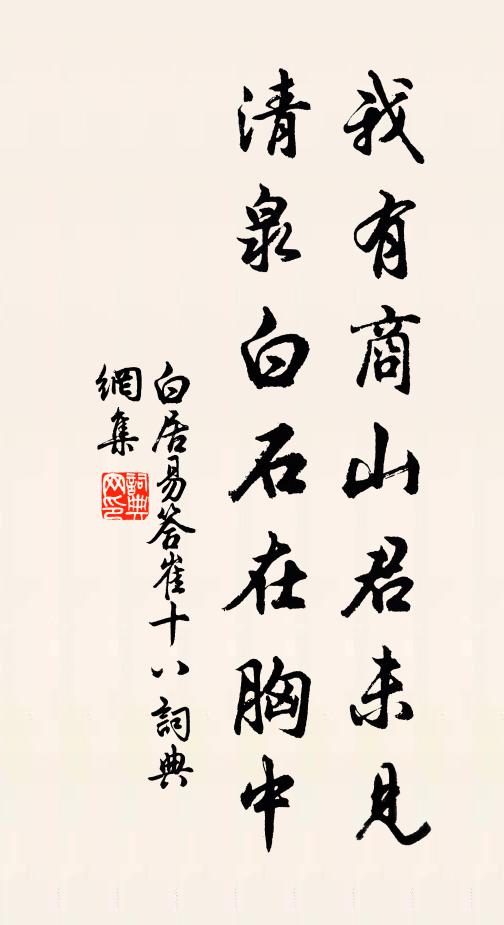 我有商山君未見
清泉白石在胸中
白居易答崔十八詞典
網集
詞典網印